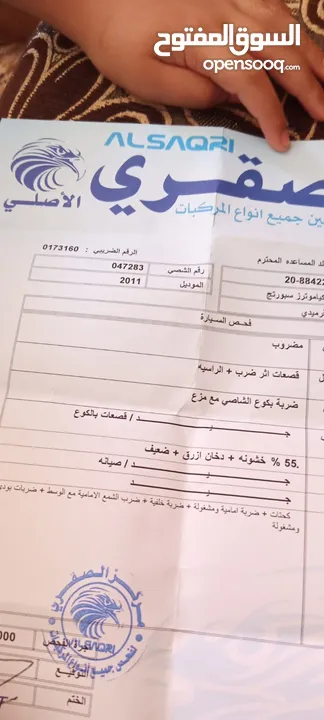 السوق المفتوح
opensooq.com
ALSAQRI
الصقري
الأصلي
جميع انواع المركبات
الرقم الضريبي : 0173160
المساعده المحترم
رقم الشصي 047283
20-8842
الموديل 2011
كياموترز سبورتج
فحص السيارة
مضروب
قصعات اثر ضرب + الراسيه
ضربة بكوع الشاصي مع مزع
جـــيـــد / قصعات بالكوع
55 % خشونه + دخان ازرق + ضعيف
جـــيـــد / صيانه
جـــيـــد
كحتات + ضربة امامية ومشغولة + ضربة خلفية + ضرب الشمع الامامية مع الوسط + ضربات بودي
ومشغولة
مركز الصقري
ALSAQRI
لفحص جميع انواع المركبات
000
التوقيع
الختم